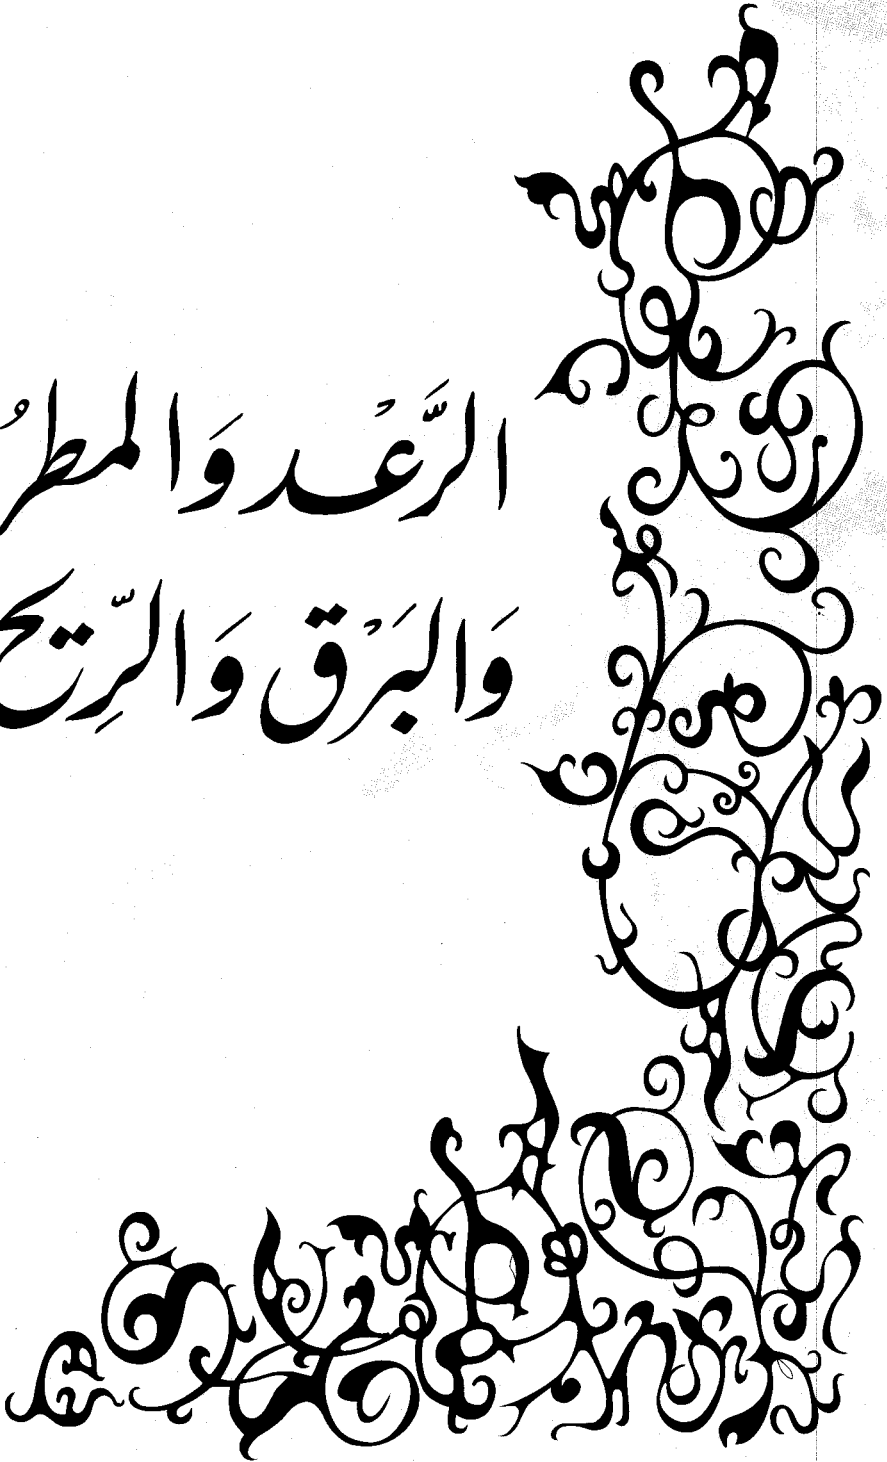 الرَّعْد وَالمطرُ
وَالبَرْق وَالرِّيح